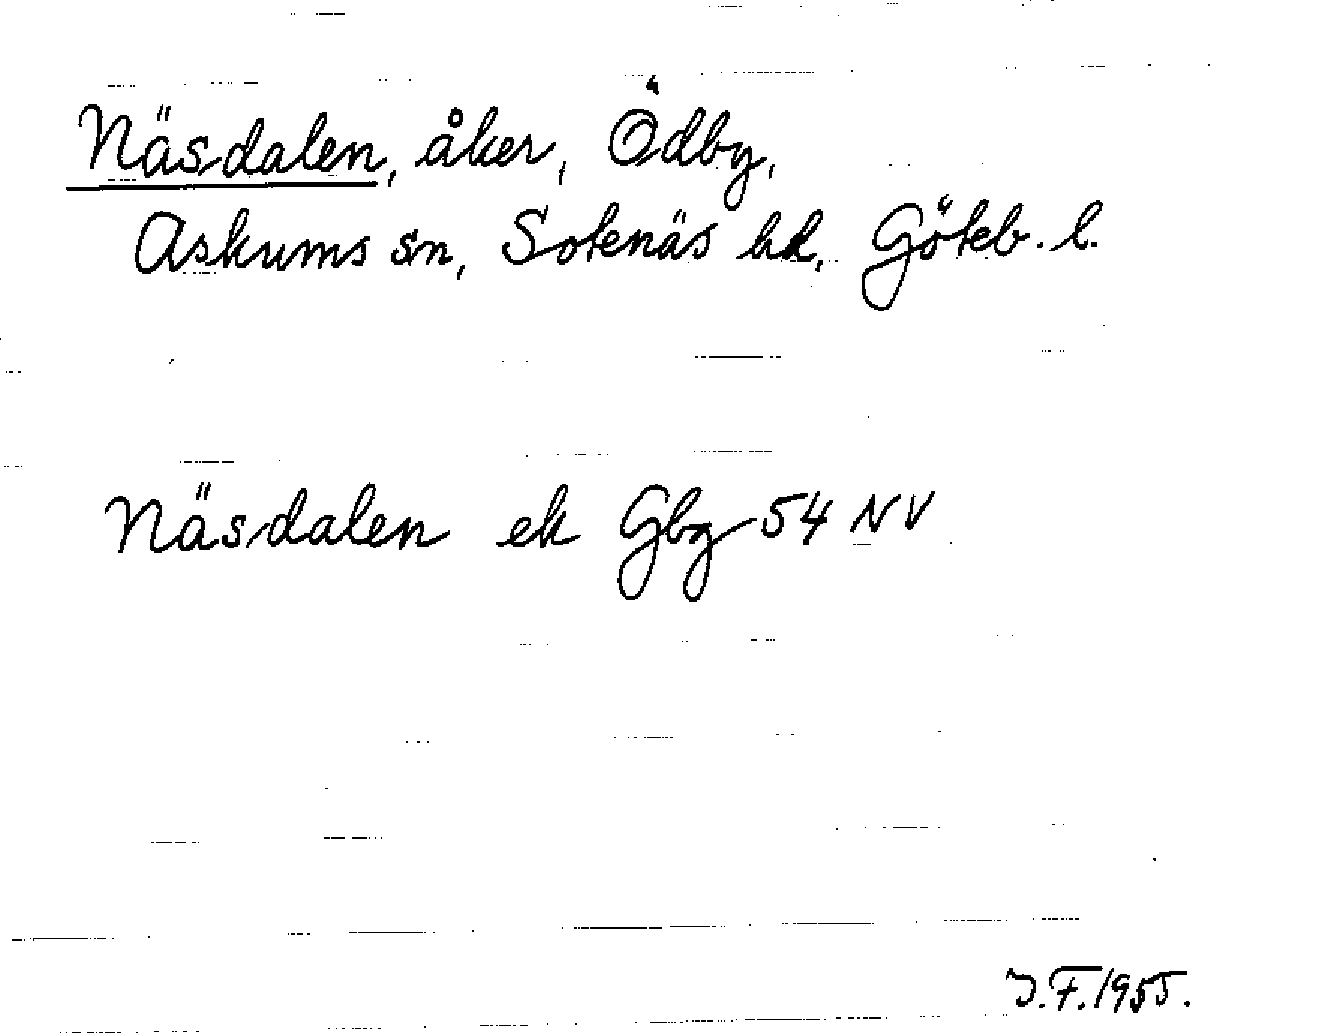 Näsdalen, åker, Ödby,
Askums sn, Sotenäs hd, Göteb. l.
Näsdalen ek Gbg 54 NV
J.F. 1955.